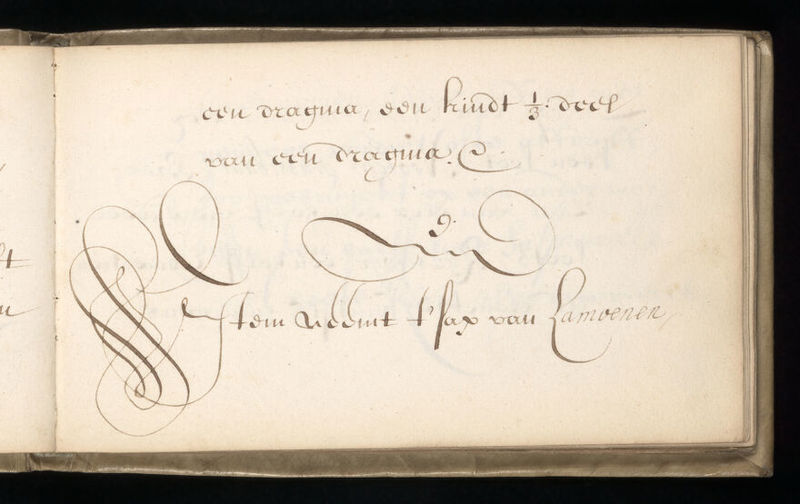 een dragma, een kindt 1/3. deel
van een dragma.
9.
Item Neemt t'sap van Lamoenen,